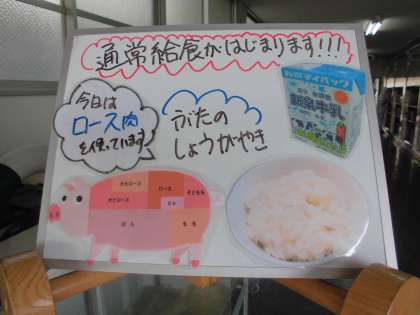 通常給食がはじまります!!!
今日は
ロース肉
を使っています
ぶたの
しょうがやき
新潟牛乳
かたロース
ロース
そともも
かたロース
ヒレ
ばら
もも